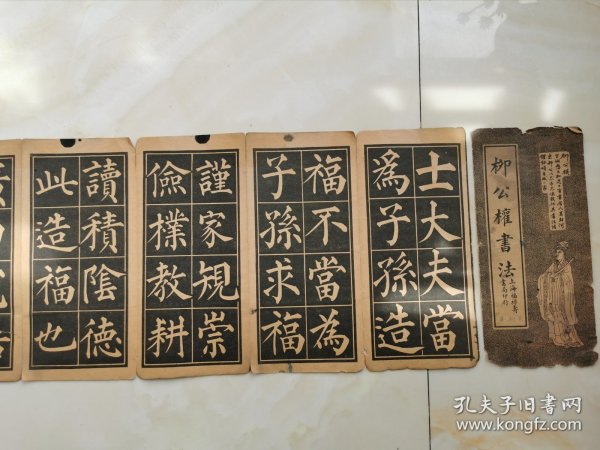 柳公權書法
士大夫當
爲子孫造
福不當為
子孫求福
謹家規崇
儉樸教耕
讀積陰德
此造福也
孔夫子旧书网
www.kongfz.com